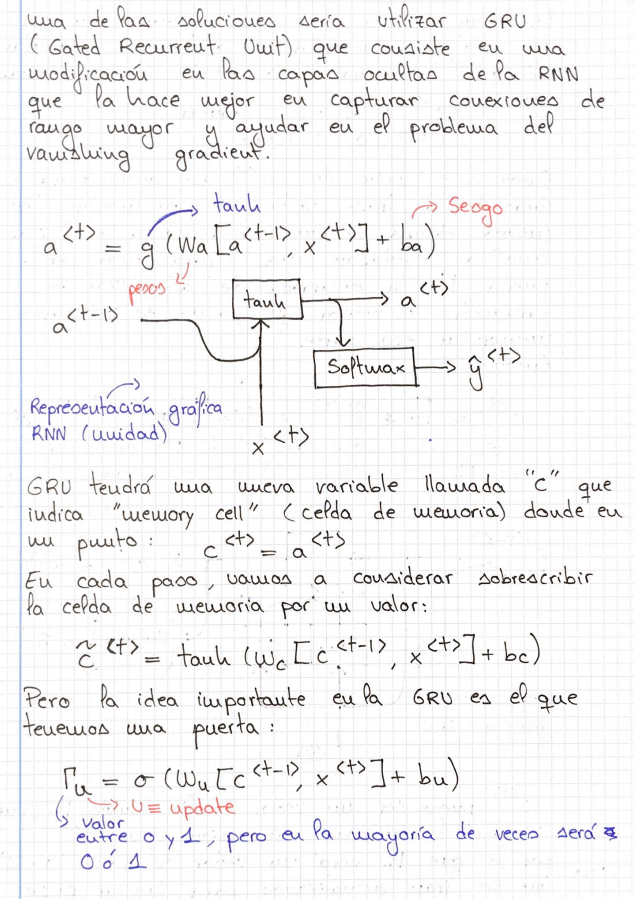 una de las soluciones sería utilizar GRU
(Gated Recurrent Unit) que consiste en una
modificación en las capas ocultas de la RNN
que la hace mejor en capturar conexiones de
rango mayor y ayudar en el problema del
vanishing gradient.
tanh
Sesgo
a<t> = g (Wa [a<t-1>, x<t>] + ba)
pesos
tanh
a<t>
a<t-1>
Softmax
ŷ<t>
Representación gráfica
RNN (unidad)
x<t>
GRU tendrá una nueva variable llamada "c" que
indica "memory cell" (celda de memoria) donde en
un punto: c<t> = a<t>
En cada paso, vamos a considerar sobrescribir
la celda de memoria por un valor:
c̃<t> = tanh (Wc [c<t-1>, x<t>] + bc)
Pero la idea importante en la GRU es el que
tenemos una puerta:
Γu = σ (Wu [c<t-1>, x<t>] + bu)
U ≡ update
valor
entre 0 y 1, pero en la mayoría de veces será
0 ó 1